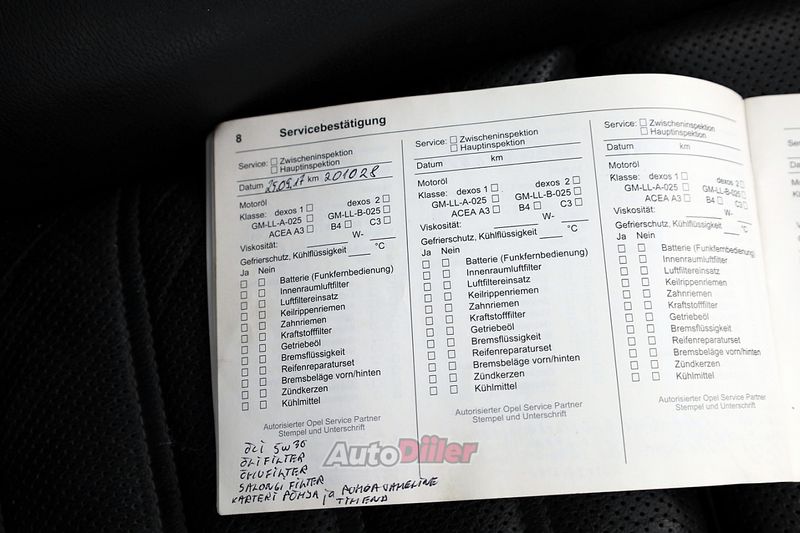 8 Servicebestätigung
Service: Zwischeninspektion
Hauptinspektion
Datum 25.09.17 km 201028
Motoröl
Klasse: dexos 1 dexos 2
GM-LL-A-025 GM-LL-B-025
ACEA A3 B4 C3
Viskosität: W-
Gefrierschutz, Kühlflüssigkeit °C
Ja Nein
Batterie (Funkfernbedienung)
Innenraumluftfilter
Luftfiltereinsatz
Keilrippenriemen
Zahnriemen
Kraftstofffilter
Getriebeöl
Bremsflüssigkeit
Reifenreparaturset
Bremsbeläge vorn/hinten
Zündkerzen
Kühlmittel
Autorisierter Opel Service Partner
Stempel und Unterschrift
ÕLI 5W30
ÕLIFILTER
ÕHUFILTER
SALONGI FILTER
KARTERI PÕHJA ja PÕHJAVAHELINE
TIHEND
Service: Zwischeninspektion
Hauptinspektion
Datum km
Motoröl
Klasse: dexos 1 dexos 2
GM-LL-A-025 GM-LL-B-025
ACEA A3 B4 C3
Viskosität: W-
Gefrierschutz, Kühlflüssigkeit °C
Ja Nein
Batterie (Funkfernbedienung)
Innenraumluftfilter
Luftfiltereinsatz
Keilrippenriemen
Zahnriemen
Kraftstofffilter
Getriebeöl
Bremsflüssigkeit
Reifenreparaturset
Bremsbeläge vorn/hinten
Zündkerzen
Kühlmittel
Autorisierter Opel Service Partner
Stempel und Unterschrift
Service: Zwischeninspektion
Hauptinspektion
Datum km
Motoröl
Klasse: dexos 1 dexos 2
GM-LL-A-025 GM-LL-B-025
ACEA A3 B4 C3
Viskosität: W-
Gefrierschutz, Kühlflüssigkeit °C
Ja Nein
Batterie (Funkfernbedienung)
Innenraumluftfilter
Luftfiltereinsatz
Keilrippenriemen
Zahnriemen
Kraftstofffilter
Getriebeöl
Bremsflüssigkeit
Reifenreparaturset
Bremsbeläge vorn/hinten
Zündkerzen
Kühlmittel
Autorisierter Opel Service Partner
Stempel und Unterschrift
AutoDiiler